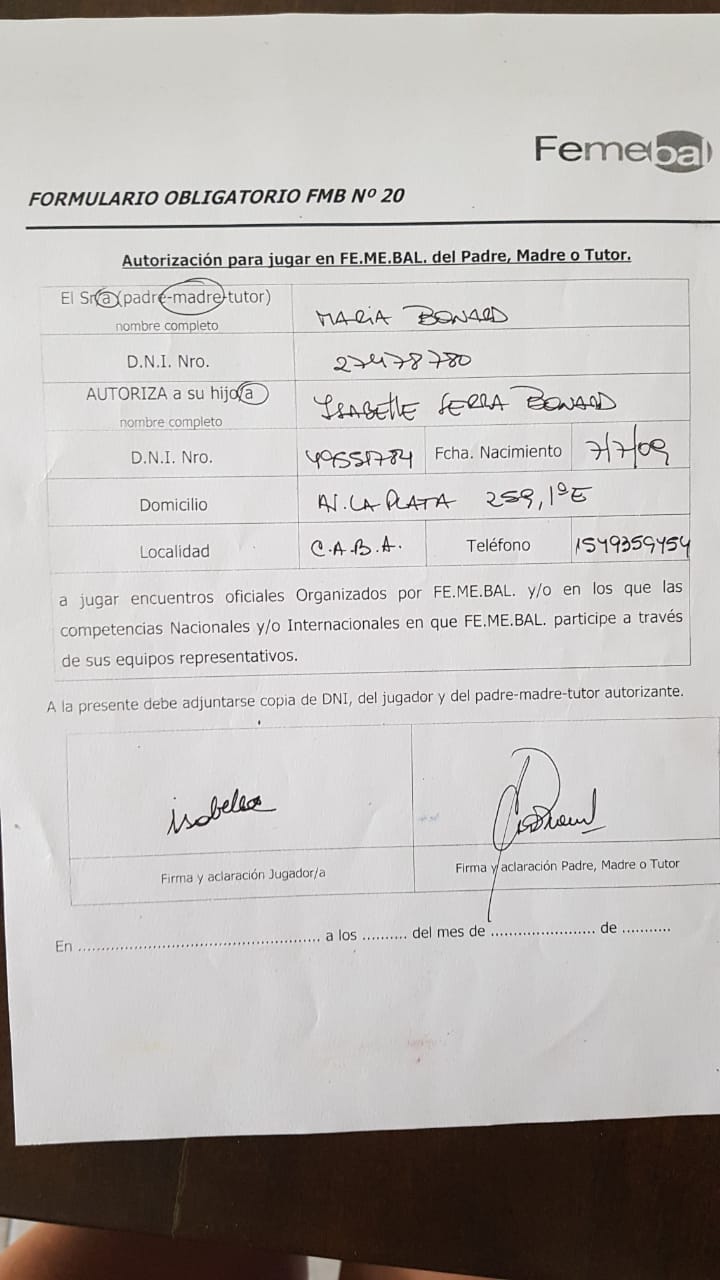 Femebal
FORMULARIO OBLIGATORIO FMB Nº 20
Autorización para jugar en FE.ME.BAL. del Padre, Madre o Tutor.
El Sr/a (padre-madre-tutor)
nombre completo
MARIA BONARD
D.N.I. Nro.
27478780
AUTORIZA a su hijo/a
nombre completo
ISABELLE SERRA BONARD
D.N.I. Nro.
49551784
Fcha. Nacimiento
7/7/09
Domicilio
AV. LA PLATA 259, 1º E
Localidad
C.A.B.A.
Teléfono
1549359454
a jugar encuentros oficiales Organizados por FE.ME.BAL. y/o en los que las
competencias Nacionales y/o Internacionales en que FE.ME.BAL. participe a través
de sus equipos representativos.
A la presente debe adjuntarse copia de DNI, del jugador y del padre-madre-tutor autorizante.
Firma y aclaración Jugador/a
Firma y aclaración Padre, Madre o Tutor
En .................................................. a los .......... del mes de ....................... de ...........